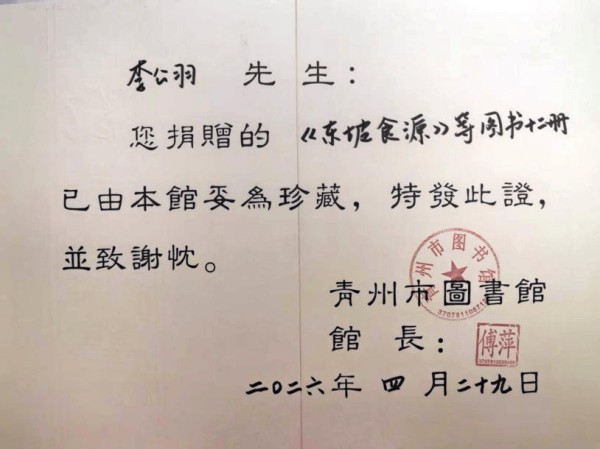 李公羽 先生：
您捐贈的《东坡食源》等图书十二册
已由本館妥為珍藏，特發此證，
並致謝忱。
青州市圖書館
青州市图书馆
館長：
傅萍
二〇二六年 四 月二十九日